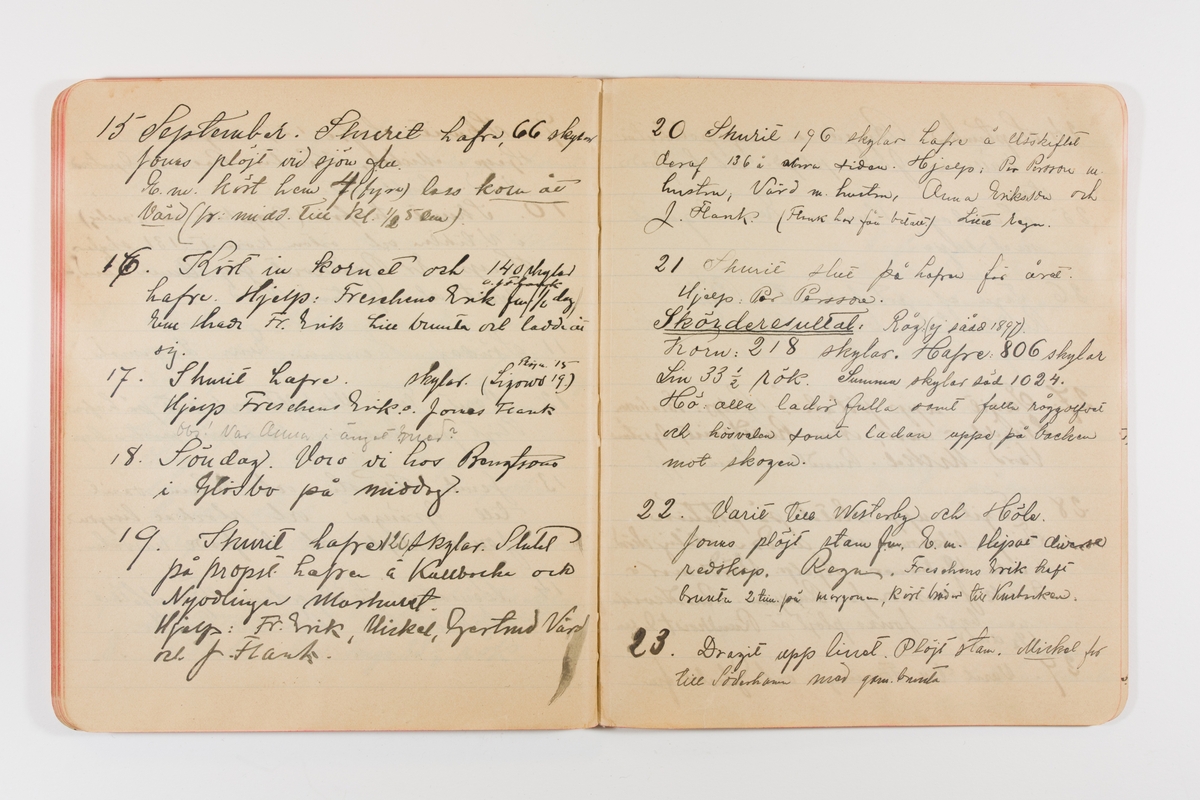 15 September. Skurit hafre, 66 skylar
Jonas plöjt vid sjön fm.
E.m. Kört hem 4 (fyra) lass korn åt
Värd (fr. midd. till kl. 1/2 5 em)
16. Kört in kornet och 140 skylar
hafre. Hjelp: Freschens Erik fm/ 1/2 dag
Fr. Erik till brunta och ladde åt
sig.
Röja 15
17. Skurit hafre. skylar. (Lizows 19)
Hjelp Freschens Erik o. Jonas Flank
Obs! Var Anna i änget med?
18. Söndag. Voro vi hos Bengtsons
i Glösbo på middag.
19. Skurit hafre 120 skylar. Slutat
på propst hafren å Kallbacka och
Nyodlingen Marhuset.
Hjelp: Fr. Erik, Mickel, Gertrud Värd
och J. Flank.
20 Skurit 196 skylar hafre å Utskiftet
deraf 136 å norra sidan. Hjelp: Per Persson m.
hustru, Värd m. hustru, Anna Eriksson och
J. Flank. (Flank har fån betalt) Litet regn.
21 Skurit slut på hafren för året.
Hjelp: Per Persson.
Skörderesultat: Råg: (ej sådd 1897).
Korn: 218 skylar. Hafre: 806 skylar
Lin 33 1/2 rök. Summa skylar säd 1024.
Hö: alla lador fulla samt fulla råggolfvet
och hösvalen samt ladan uppe på backen
mot skogen.
22. Varit till Westerby och Höle.
Jonas plöjt stam fm. E.m. slipat diverse
redskap. Regn. Freschens Erik haft
brunta 2 tim. på morgonen, kört bräder till
23. Dragit upp linet. Plöjt stam. Mickel for
till Söderhamn med gam. brunta